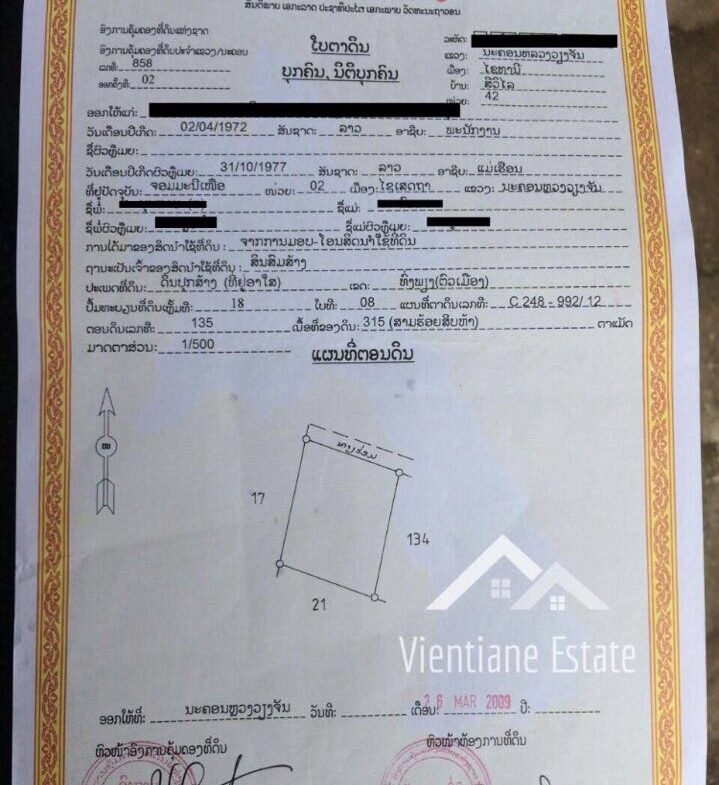 ສັນຕິພາບ ເອກະລາດ ປະຊາທິປະໄຕ ເອກະພາບ ວັດທະນະຖາວອນ
ອົງການຄຸ້ມຄອງທີ່ດິນແຫ່ງຊາດ
ອົງການຄຸ້ມຄອງທີ່ດິນປະຈຳແຂວງ/ນະຄອນ
ເລກທີ: 858
ອອກຄັ້ງທີ: 02
ໃບຕາດິນ
ບຸກຄົນ, ນິຕິບຸກຄົນ
ລະຫັດ:
ແຂວງ: ນະຄອນຫລວງວຽງຈັນ
ເມືອງ: ໄຊທານີ
ບ້ານ: ສີວິໄລ
ໜ່ວຍ: 42
ອອກໃຫ້ແກ່:
ວັນເດືອນປີເກີດ: 02/04/1972 ສັນຊາດ: ລາວ ອາຊີບ: ພະນັກງານ
ຊື່ຜົວຫຼືເມຍ:
ວັນເດືອນປີເກີດຜົວຫຼືເມຍ: 31/10/1977 ສັນຊາດ: ລາວ ອາຊີບ: ແມ່ເຮືອນ
ທີ່ຢູ່ປັດຈຸບັນ: ຈອມມະນີເໜືອ ໜ່ວຍ: 02 ເມືອງ: ໄຊເສດຖາ ແຂວງ: ນະຄອນຫຼວງວຽງຈັນ
ຊື່ພໍ່: ຊື່ແມ່:
ຊື່ພໍ່ຜົວຫຼືເມຍ: ຊື່ແມ່ຜົວຫຼືເມຍ:
ການໄດ້ມາຂອງສິດນຳໃຊ້ທີ່ດິນ: ຈາກການມອບ-ໂອນສິດນຳໃຊ້ທີ່ດິນ
ຖານະເປັນເຈົ້າຂອງສິດນຳໃຊ້ທີ່ດິນ: ສິນສົມສ້າງ
ປະເພດທີ່ດິນ: ດິນປຸກສ້າງ (ທີ່ຢູ່ອາໄສ) ເຂດ: ທົ່ງພຽງ(ຕົວເມືອງ)
ປຶ້ມທະບຽນທີ່ດິນເຫຼັ້ມທີ: 18 ໃບທີ: 08 ແຜນທີ່ຕາດິນເລກທີ: C 248 - 992/ 12
ຕອນດິນເລກທີ: 135 ເນື້ອທີ່ຂອງດິນ: 315 (ສາມຮ້ອຍສິບຫ້າ) ຕາແມັດ
ມາດຕາສ່ວນ: 1/500
ແຜນທີ່ຕອນດິນ
ທາງຮ່ວມ
17
134
21
Vientiane Estate
ອອກໃຫ້ທີ່: ນະຄອນຫຼວງວຽງຈັນ ວັນທີ: ເດືອນ: ປີ:
26 MAR 2009
ຫົວໜ້າອົງການຄຸ້ມຄອງທີ່ດິນ
ຫົວໜ້າຫ້ອງການທີ່ດິນ